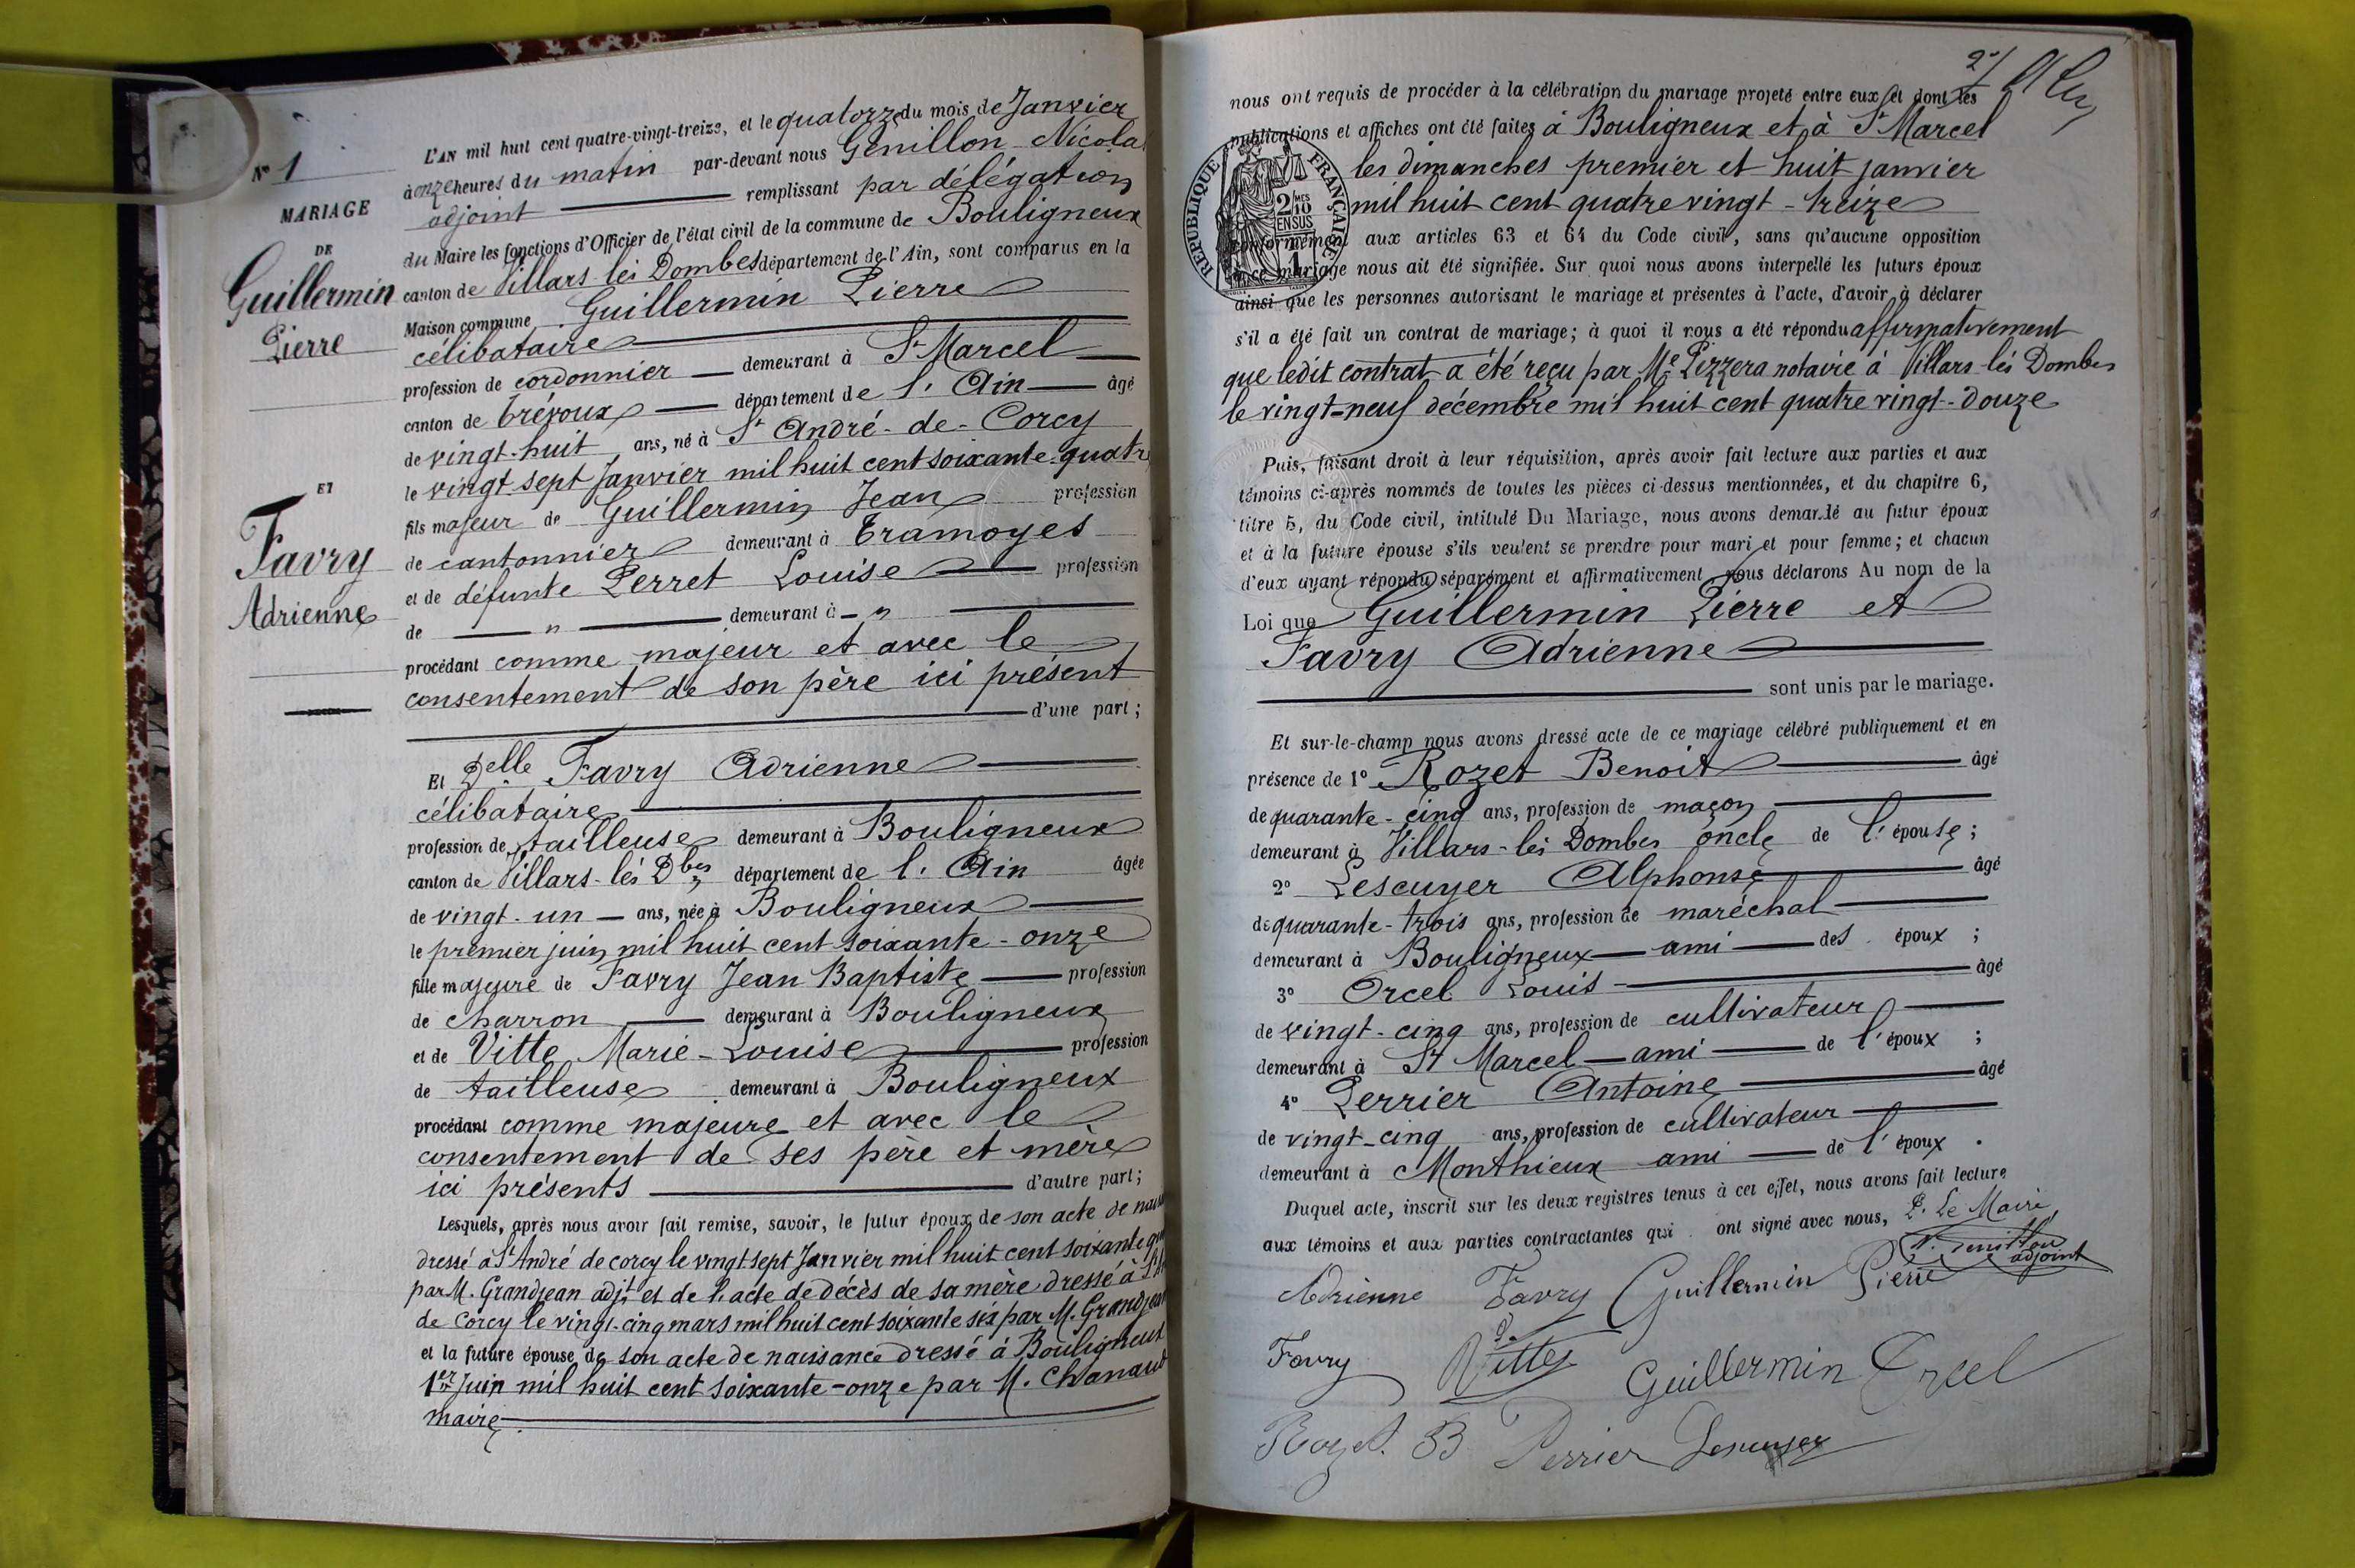 N° 1
MARIAGE
DE
Guillermin
Pierre
ET
Favry
Adrienne
L'AN mil huit cent quatre-vingt-treize, et le quatorze du mois de Janvier
à onze heures du matin par-devant nous Genillon Nicolas
adjoint remplissant par délégation
du Maire les fonctions d'Officier de l'état civil de la commune de Bouligneux
canton de Villars les Dombes département de l'Ain, sont comparus en la
Maison commune Guillermin Pierre
célibataire
profession de cordonnier demeurant à St Marcel
canton de Trévoux département de l'Ain âgé
de vingt-huit ans, né à St André-de-Corcy
le vingt-sept Janvier mil huit cent soixante-quatre
fils majeur de Guillermin Jean profession
de cantonnier demeurant à Tramoyes
et de défunte Perret Louise profession
de " demeurant à "
procédant comme majeur et avec le
consentement de son père ici présent
d'une part;
Et Delle Favry Adrienne
célibataire
profession de tailleuse demeurant à Bouligneux
canton de Villars-lès Dbes département de l'Ain âgée
de vingt-un ans, née à Bouligneux
le premier juin mil huit cent soixante-onze
fille majeure de Favry Jean Baptiste profession
de charron demeurant à Bouligneux
et de Vitte Marie-Louise profession
de tailleuse demeurant à Bouligneux
procédant comme majeure et avec le
consentement de ses père et mère
ici présents d'autre part;
Lesquels, après nous avoir fait remise, savoir, le futur époux de son acte de
dressé à St André de corcy le vingt-sept Janvier mil huit cent soixante
par M. Grandjean adjt et de l'acte de décès de sa mère dressé à St
de Corcy le vingt-cinq mars mil huit cent soixante six par M. Grandjean
et la future épouse de son acte de naissance dressé à Bouligneux
1er Juin mil huit cent soixante-onze par M. Chanaud
maire
2
nous ont requis de procéder à la célébration du mariage projeté entre eux et dont les
publications et affiches ont été faites à Bouligneux et à St Marcel
les dimanches premier et huit janvier
mil huit cent quatre vingt-treize
RÉPUBLIQUE FRANÇAISE
2/10 MES
EN SUS
conformément aux articles 63 et 64 du Code civil, sans qu'aucune opposition
à ce mariage nous ait été signifiée. Sur quoi nous avons interpellé les futurs époux
ainsi que les personnes autorisant le mariage et présentes à l'acte, d'avoir à déclarer
s'il a été fait un contrat de mariage; à quoi il nous a été répondu affirmativement
que ledit contrat a été reçu par Me Pizzera notaire à Villars-lès Dombes
le vingt-neuf décembre mil huit cent quatre vingt-douze
Puis, faisant droit à leur réquisition, après avoir fait lecture aux parties et aux
témoins ci-après nommés de toutes les pièces ci-dessus mentionnées, et du chapitre 6,
titre 5, du Code civil, intitulé Du Mariage, nous avons demandé au futur époux
et à la future épouse s'ils veulent se prendre pour mari et pour femme; et chacun
d'eux ayant répondu séparément et affirmativement, nous déclarons Au nom de la
Loi que Guillermin Pierre et
Favry Adrienne
sont unis par le mariage.
Et sur-le-champ nous avons dressé acte de ce mariage célébré publiquement et en
présence de 1° Rozet Benoit âgé
de quarante-cinq ans, profession de maçon
demeurant à Villars-lès Dombes oncle de l'épouse;
2° Lescuyer Alphonse âgé
de quarante-trois ans, profession de maréchal
demeurant à Bouligneux ami des époux;
3° Orcel Louis âgé
de vingt-cinq ans, profession de cultivateur
demeurant à St Marcel ami de l'époux;
4° Perrier Antoine âgé
de vingt-cinq ans, profession de cultivateur
demeurant à Monthieux ami de l'époux.
Duquel acte, inscrit sur les deux registres tenus à cet effet, nous avons fait lecture
aux témoins et aux parties contractantes qui ont signé avec nous, P. Le Maire
N. Genillon
adjoint
Adrienne Favry Guillermin Pierre
Favry Vitte Guillermin Orcel
Rozet B Perrier Lescuyer